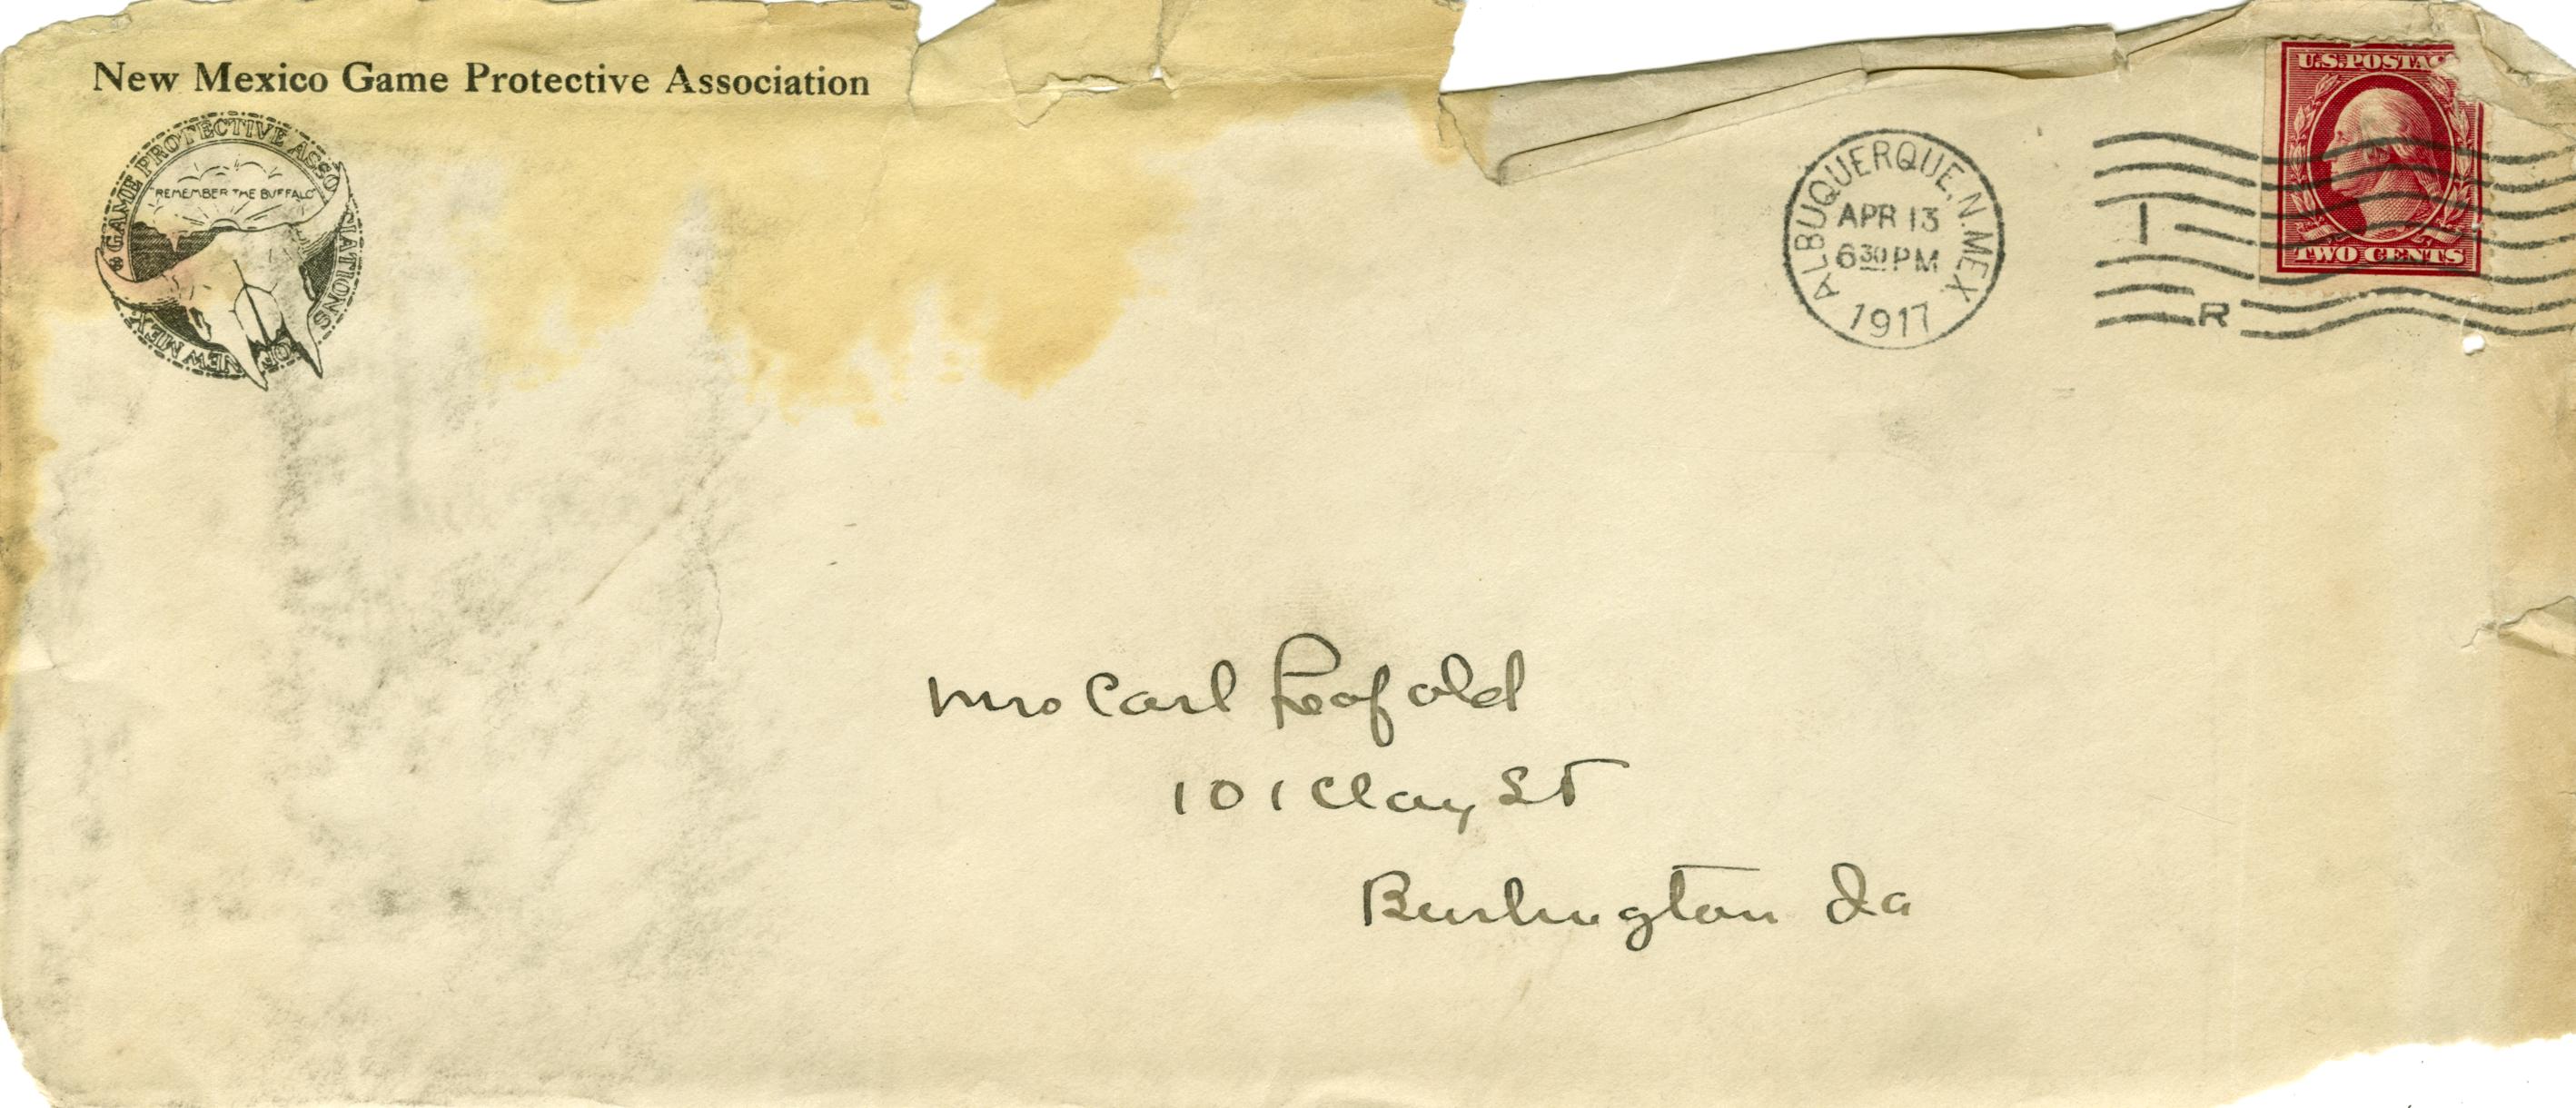 New Mexico Game Protective Association
GAME PROTECTIVE ASSOCIATIONS OF NEW MEX
"REMEMBER THE BUFFALO"
ALBUQUERQUE, N. MEX.
APR 13
6 30 PM
1917
1
R
U.S. POSTAG
TWO CENTS
Mrs Carl Leopold
101 Clay St
Burlington Ia